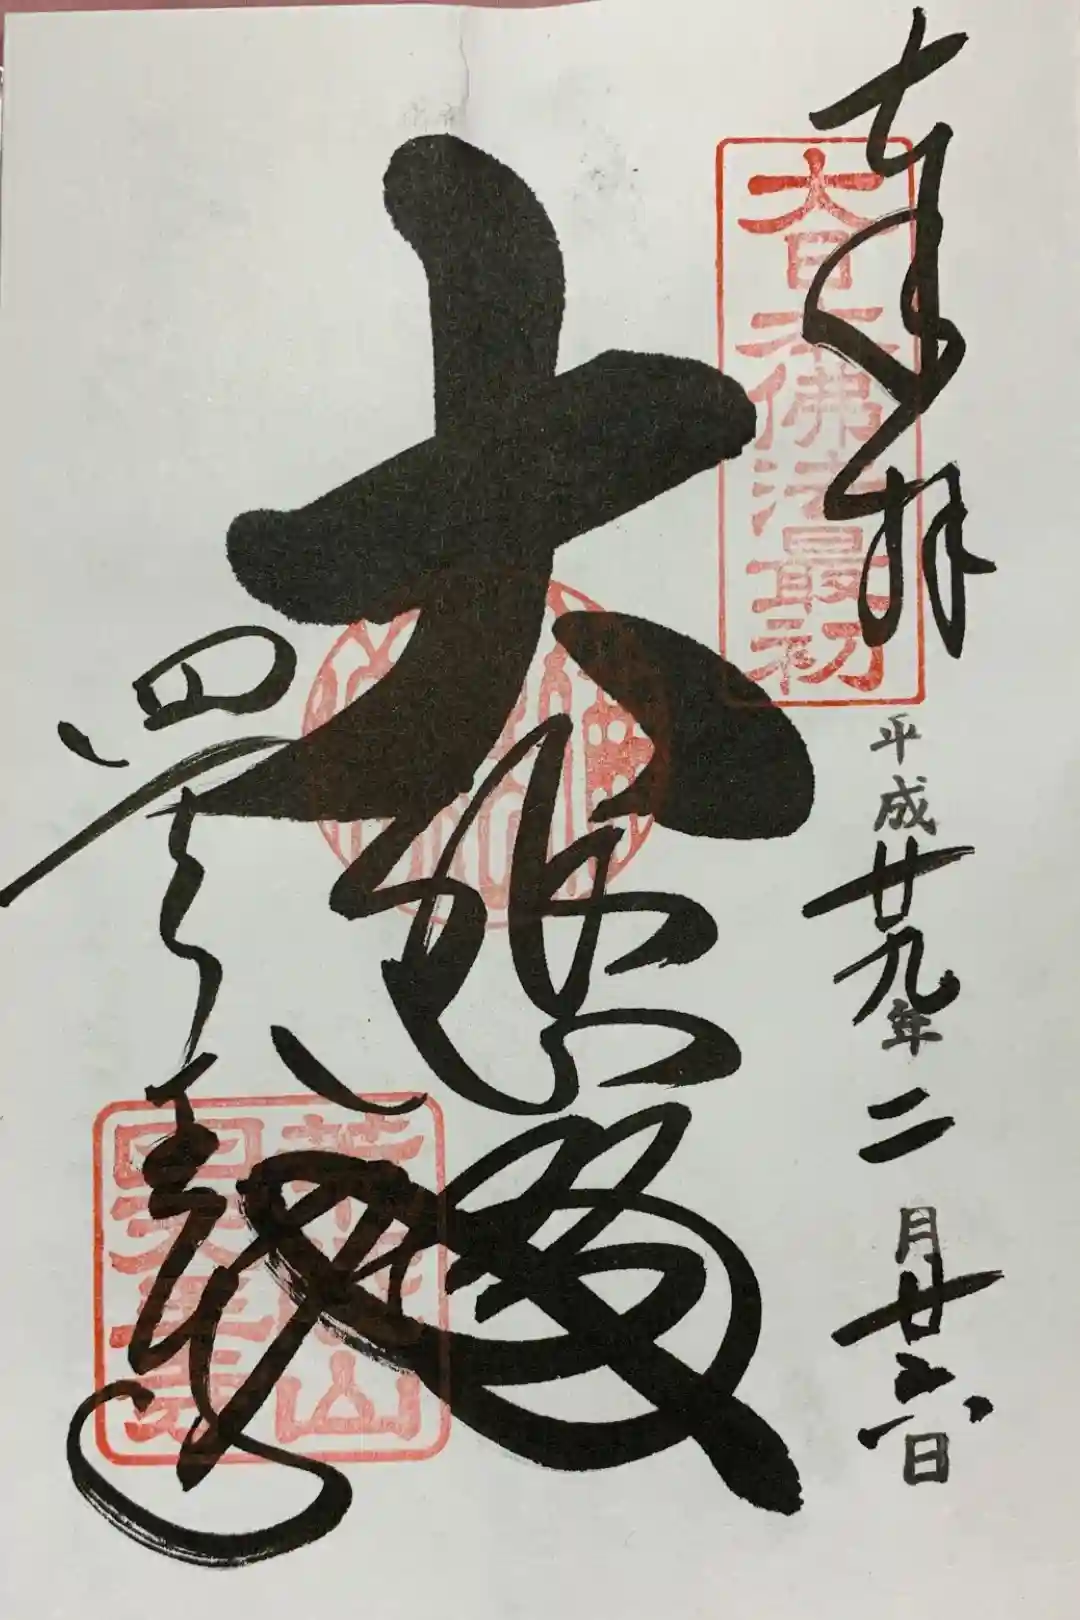 奉拝
大日本佛法最初
平成廿九年二月廿六日
大悲殿
四天王寺
荒陵山
四天王寺